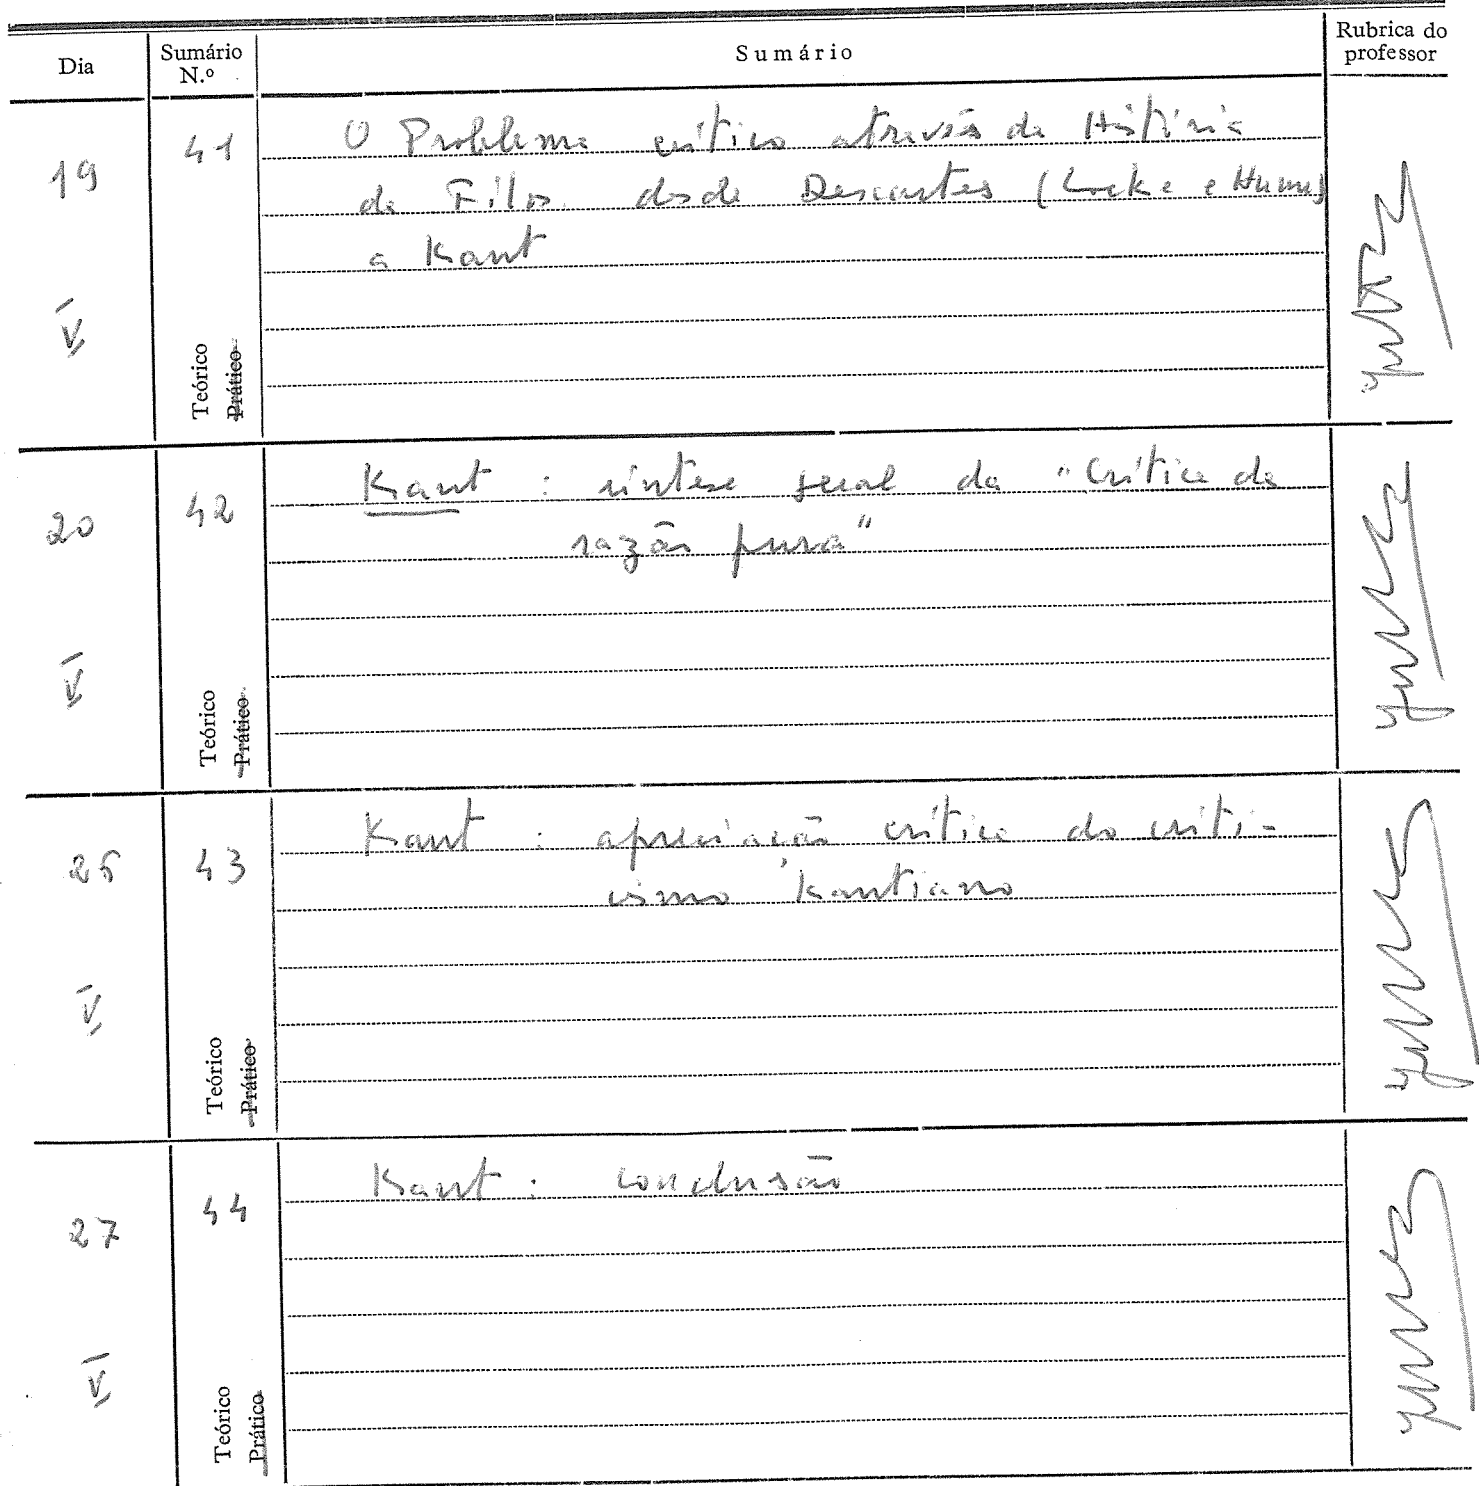 Dia
Sumário N.º
Sumário
Rubrica do professor
19
V
41
Teórico
Prático
O Problema crítico através da História
da Filos. desde Descartes (Locke e Hume)
a Kant
20
V
42
Teórico
Prático
Kant : síntese geral da "Crítica da
razão pura"
V
43
Teórico
Prático
Kant : apreciação crítica do criti-
cismo Kantiano
27
V
44
Teórico
Prático
Kant : conclusão